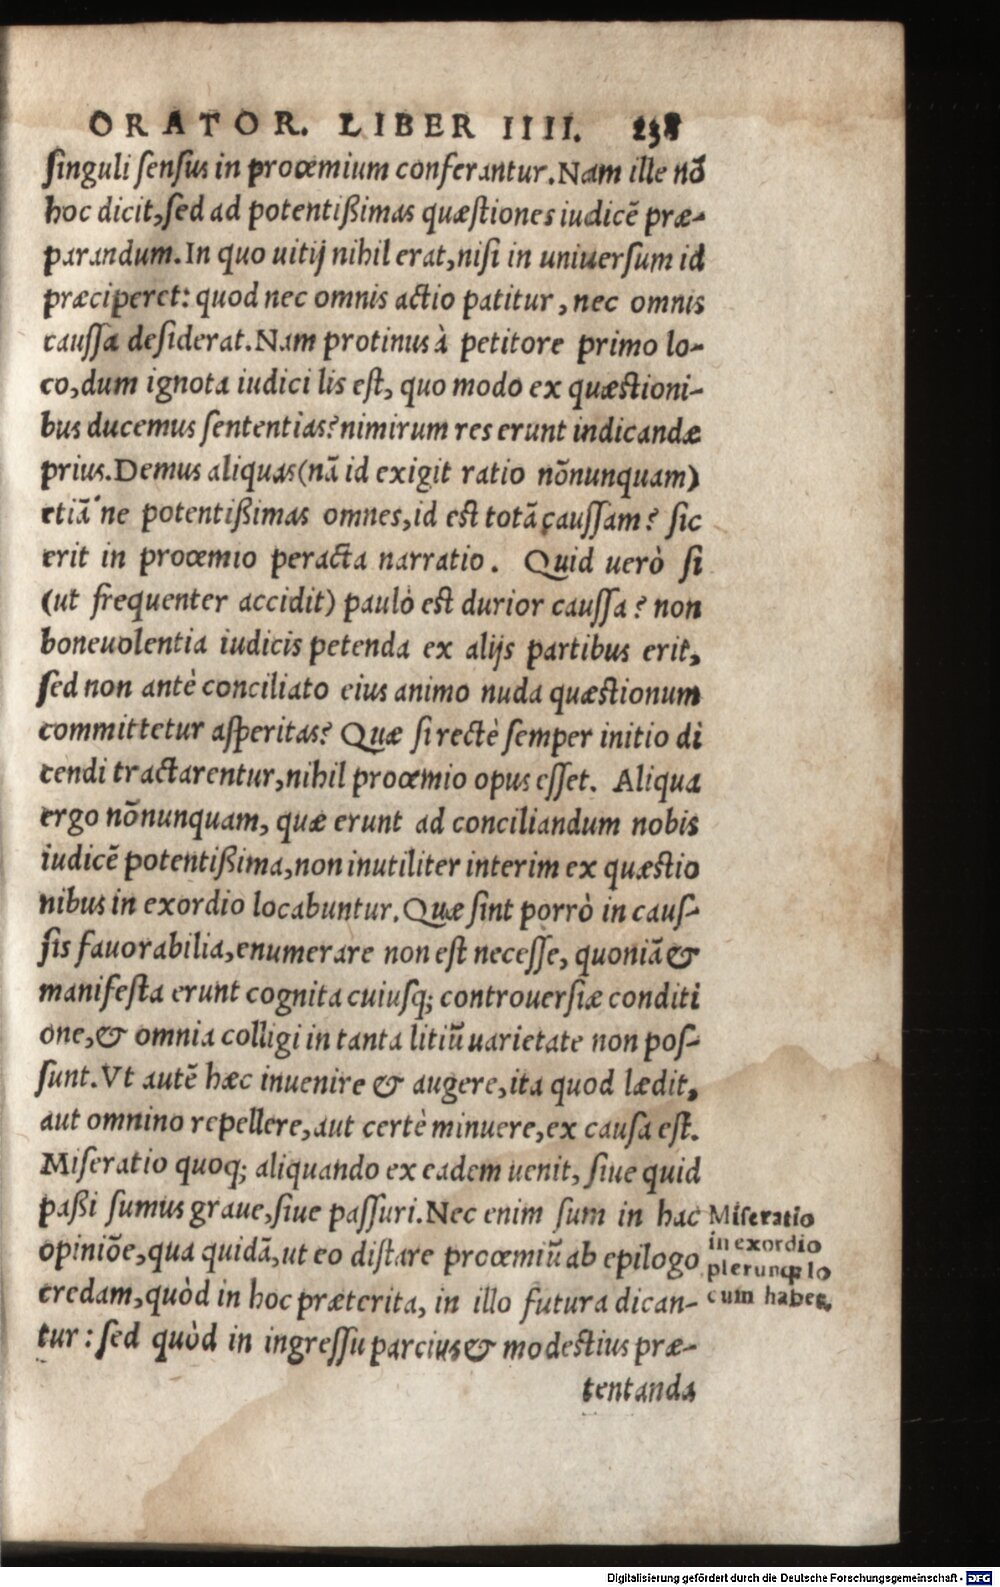 ORATOR. LIBER IIII. 238
singuli sensus in procemium conferantur. Nam ille nō
hoc dicit, sed ad potentißimas quæstiones iudicē præ-
parandum. In quo uitij nihil erat, nisi in uniuersum id
præciperet: quod nec omnis actio patitur, nec omnis
caussa desiderat. Nam protinus à petitore primo lo-
co, dum ignota iudici lis est, quo modo ex quæstioni-
bus ducemus sententias? nimirum res erunt indicandæ
prius. Demus aliquas (nā id exigit ratio nōnunquam)
etiā ne potentißimas omnes, id est totā caussam? sic
erit in procemio peracta narratio. Quid uerò si
(ut frequenter accidit) paulo est durior caussa? non
boneuolentia iudicis petenda ex alijs partibus erit,
sed non antè conciliato eius animo nuda quæstionum
committetur asperitas? Quæ si rectè semper initio di
cendi tractarentur, nihil procemio opus esset. Aliqua
ergo nōnunquam, quæ erunt ad conciliandum nobis
iudicē potentißima, non inutiliter interim ex quæstio
nibus in exordio locabuntur. Quæ sint porrò in caus-
sis fauorabilia, enumerare non est necesse, quoniā &
manifesta erunt cognita cuiusq; controuersiæ conditi
one, & omnia colligi in tanta litiū uarietate non pos-
sunt. Vt autē hæc inuenire & augere, ita quod lædit,
aut omnino repellere, aut certè minuere, ex causa est.
Miseratio quoq; aliquando ex eadem uenit, siue quid
paßi sumus graue, siue passuri. Nec enim sum in hac
opiniōe, qua quidā, ut eo distare procemiū ab epilogo
credam, quòd in hoc præterita, in illo futura dican-
tur: sed quòd in ingressu parcius & modestius præ-
tentanda
Miseratio
in exordio
plerunq; lo
cum habet.
Digitalisierung gefördert durch die Deutsche Forschungsgemeinschaft - DFG